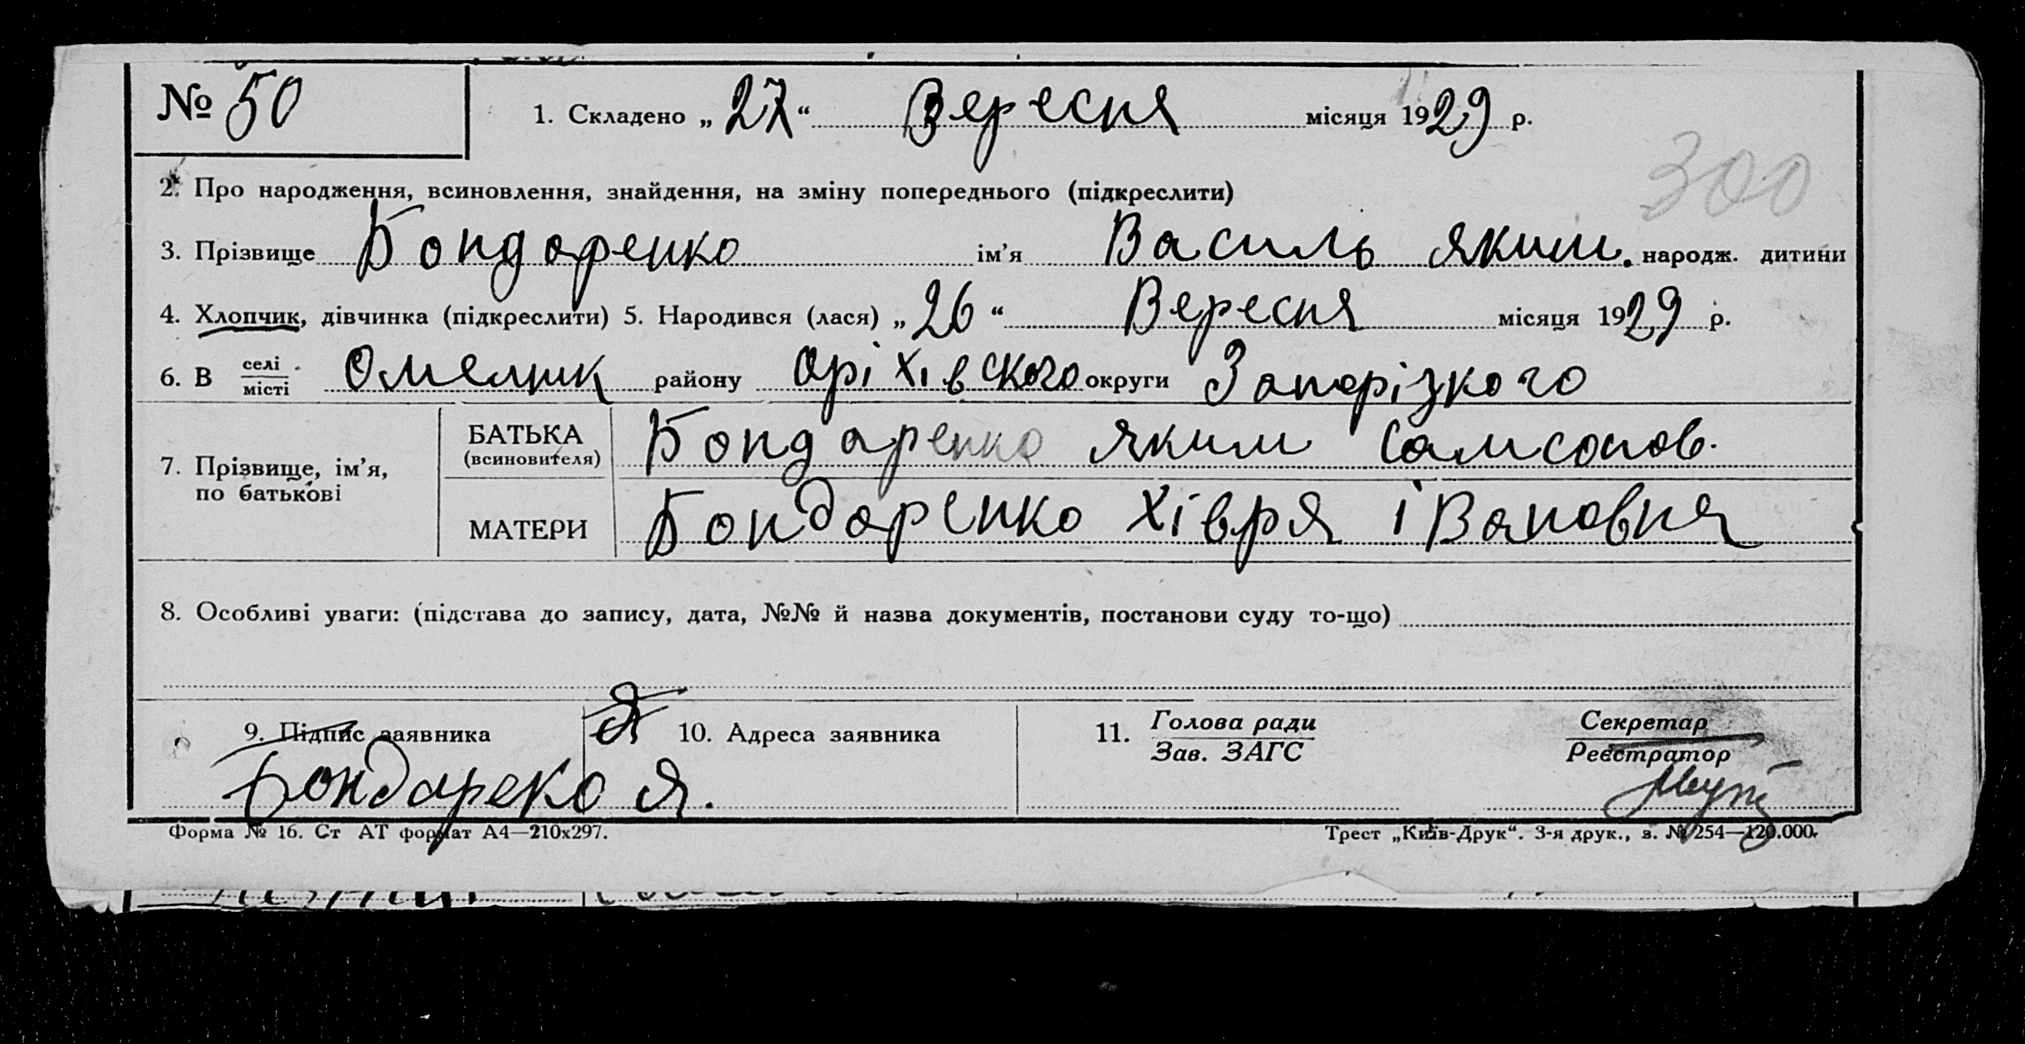 № 50
1. Складено „27“ Вересня місяця 1929 р.
300
2. Про народження, всиновлення, знайдення, на зміну попереднього (підкреслити)
3. Прізвище Бондаренко ім’я Василь Яким. народж. дитини
4. Хлопчик, дівчинка (підкреслити) 5. Народився (лася) „26“ Вересня місяця 1929 р.
6. В селі місті Омелник району Оріхівского округи Запорізкого
7. Прізвище, ім’я, по батькові
БАТЬКА (всиновителя) Бондаренко Яким Самсонов.
МАТЕРИ Бондаренко Хівря Івановня
8. Особливі уваги: (підстава до запису, дата, №№ й назва документів, постанови суду то-що)
9. Підпис заявника
Бондареко Я.
10. Адреса заявника
11. Голова ради
Зав. ЗАГС
Секретар
Реєстратор
Форма № 16. Ст АТ формат А4—210х297.
Трест „Київ-Друк“. 3-я друк., з. № 254—120.000.